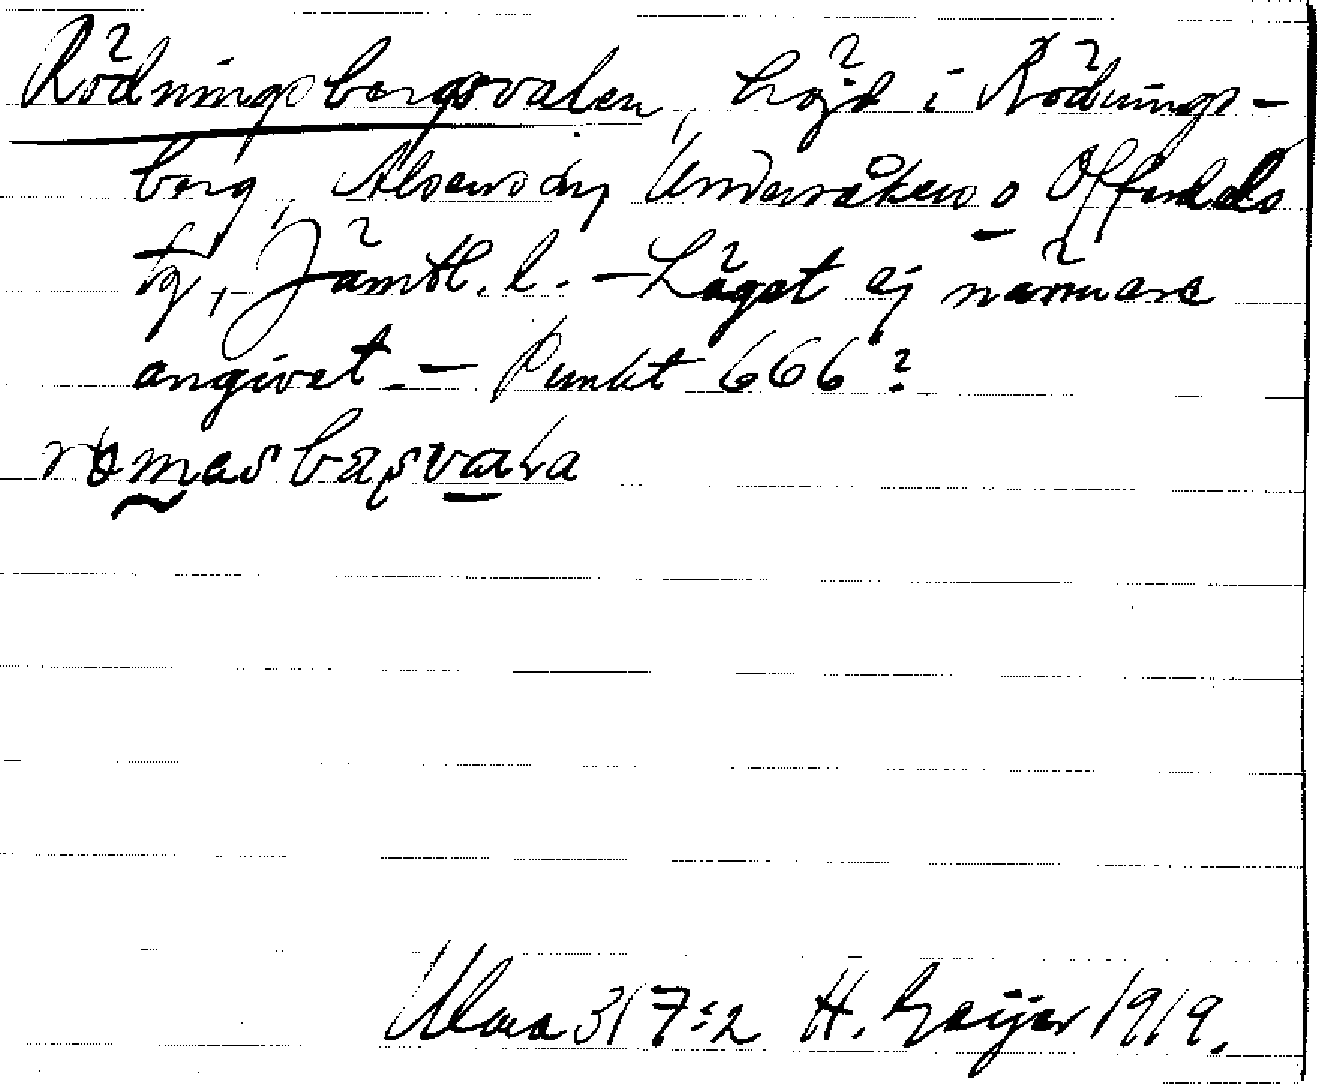 Rödningsbergsvalen, höjd i Rödnings-
berg, Alsens sn, Undersåkers o Offerdals
tg, Jämtl. l. – Läget ej närmare
angivet – Punkt 666?
Ulma 317:2 H. Geijer 1919.